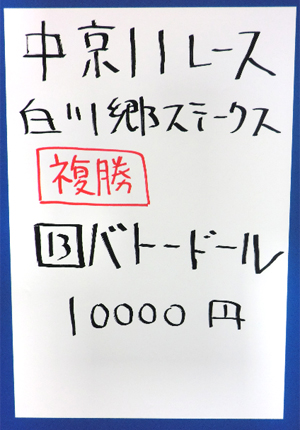 中京11レース
白川郷ステークス
複勝
13バトードール
10000円